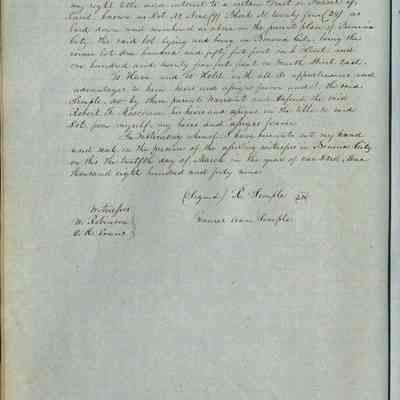 my right title and interest to a certain Tract or Parcel of
Land, known as Lot No Nine (9) Block No twenty four (24) as
laid down and numbered as above in the present plan of Benicia
City. the said lot lying and being in Benicia City, being the
corner lot One hundred and fifty feet front on Street and
one hundred and twenty five feet on Fourth Street East.
To Have and To Hold with all its appurtenances and
advantages to him heirs and assigns forever and I the said
Semple, do by these presents Warrant and defend the said
Robert F. his heirs and assigns in the title to said
Lot, from myself, my heirs and assigns forever.
In Testimony whereof I have hereunto set my hand
and seal in the presence of the witnesses in Benicia City
on this the twelfth day of March in the year of our Lord, One
thousand eight hundred and forty nine.
(Signed) R. Semple
Witnesses
W. Robinson
Frances Ann Semple